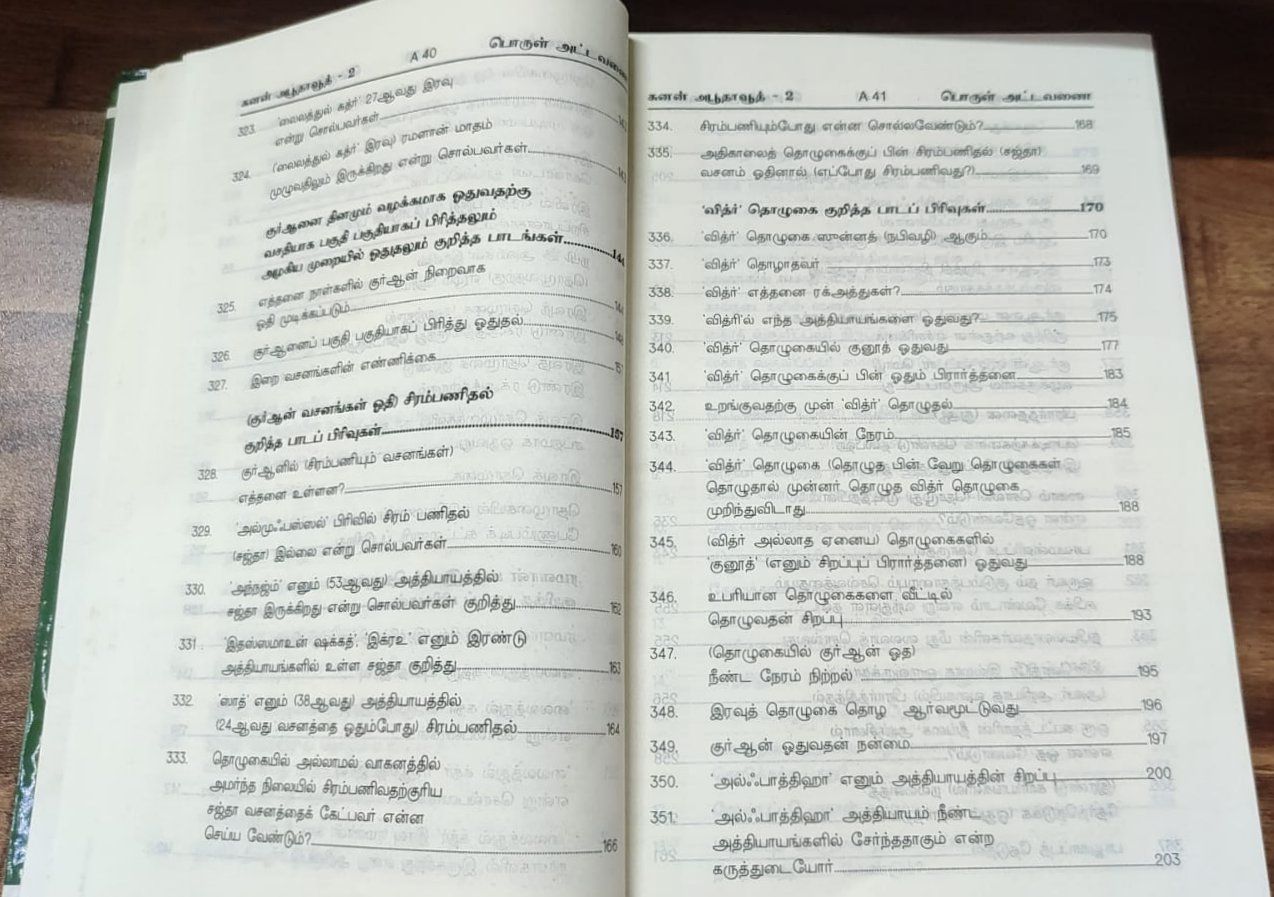 சுனன் அபூதாவூத் - 2 A 40 பொருள் அட்டவணை
323. 'லைலத்துல் கத்ர்' 27ஆவது இரவு
என்று சொல்பவர்கள்
324. (லைலத்துல் கத்ர்' இரவு) ரமளான் மாதம்
முழுவதிலும் இருக்கிறது என்று சொல்பவர்கள் 143
குர்ஆனை தினமும் வழக்கமாக ஓதுவதற்கு
வசதியாக பகுதி பகுதியாகப் பிரித்தலும்
அழகிய முறையில் ஓதுதலும் குறித்த பாடங்கள் 144
325. எத்தனை நாள்களில் குர்ஆன் நிறைவாக
ஓதி முடிக்கப்படும் 144
326. குர்ஆனைப் பகுதி பகுதியாகப் பிரித்து ஓதுதல் 148
327. இறை வசனங்களின் எண்ணிக்கை 151
(குர்ஆன் வசனங்கள் ஓதி) சிரம்பணிதல்
குறித்த பாடப் பிரிவுகள் 157
328. குர்ஆனில் (சிரம்பணியும் வசனங்கள்)
எத்தனை உள்ளன? 157
329. 'அல்முஃபஸ்ஸல்' பிரிவில் சிரம் பணிதல்
(சஜ்தா) இல்லை என்று சொல்பவர்கள் 160
330. 'அந்நஜ்ம்' எனும் (53ஆவது) அத்தியாயத்தில்
சஜ்தா இருக்கிறது என்று சொல்பவர்கள் குறித்து 162
331. 'இதஸ்ஸமாஉன் ஷக்கத்', 'இக்ரஉ' எனும் இரண்டு
அத்தியாயங்களில் உள்ள சஜ்தா குறித்து 163
332. 'ஸாத்' எனும் (38ஆவது) அத்தியாயத்தில்
(24ஆவது வசனத்தை ஓதும்போது) சிரம்பணிதல் 164
333. தொழுகையில் அல்லாமல் வாகனத்தில்
அமர்ந்த நிலையில் சிரம்பணிவதற்குரிய
சஜ்தா வசனத்தைக் கேட்பவர் என்ன
செய்ய வேண்டும்? 166
சுனன் அபூதாவூத் - 2 A 41 பொருள் அட்டவணை
334. சிரம்பணியும்போது என்ன சொல்லவேண்டும்? 168
335. அதிகாலைத் தொழுகைக்குப் பின் சிரம்பணிதல் (சஜ்தா)
வசனம் ஓதினால் (எப்போது சிரம்பணிவது?) 169
'வித்ர்' தொழுகை குறித்த பாடப் பிரிவுகள் 170
336. 'வித்ர்' தொழுகை ஸுன்னத் (நபிவழி) ஆகும் 170
337. 'வித்ர்' தொழாதவர் 173
338. 'வித்ர்' எத்தனை ரக்அத்துகள்? 174
339. 'வித்ரி'ல் எந்த அத்தியாயங்களை ஓதுவது? 175
340. 'வித்ர்' தொழுகையில் குனூத் ஓதுவது 177
341 'வித்ர்' தொழுகைக்குப் பின் ஓதும் பிரார்த்தனை 183
342. உறங்குவதற்கு முன் 'வித்ர்' தொழுதல் 184
343. 'வித்ர்' தொழுகையின் நேரம் 185
344. 'வித்ர்' தொழுகை (தொழுத பின் வேறு தொழுகைகள்
தொழுதால் முன்னர் தொழுத வித்ர் தொழுகை
முறிந்துவிடாது 188
345. (வித்ர் அல்லாத ஏனைய) தொழுகைகளில்
'குனூத்' (எனும் சிறப்புப் பிரார்த்தனை) ஓதுவது 188
346. உபரியான தொழுகைகளை வீட்டில்
தொழுவதன் சிறப்பு 193
347. (தொழுகையில் குர்ஆன் ஓத)
நீண்ட நேரம் நிற்றல் 195
348. இரவுத் தொழுகை தொழ ஆர்வமூட்டுவது 196
349. குர்ஆன் ஓதுவதன் நன்மை 197
350. 'அல்ஃபாத்திஹா' எனும் அத்தியாயத்தின் சிறப்பு 200
351. 'அல்ஃபாத்திஹா' அத்தியாயம் நீண்ட
அத்தியாயங்களில் சேர்ந்ததாகும் என்ற
கருத்துடையோர் 203